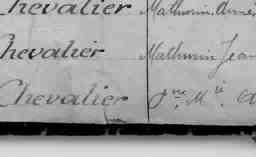 Chevalier Mathurin Anne
Chevalier Mathurin Jean
Chevalier Jne. Mie